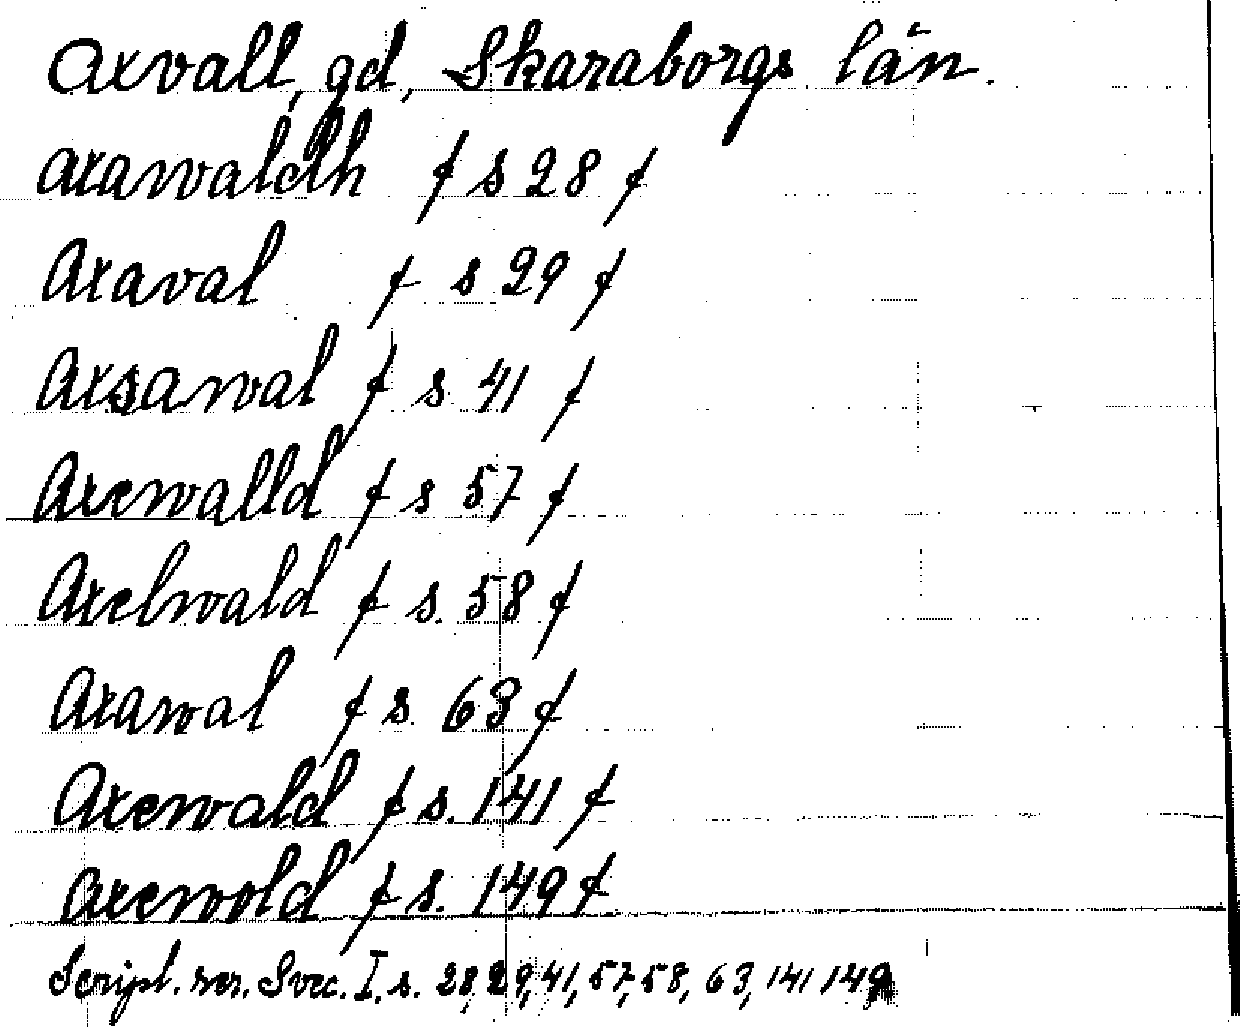 Axvall, gd, Skaraborgs län.
Axawaldh f s 28 f
Axaval f s 29 f
Axsawal f s. 41 f
Axewalld f s 57 f
Axelwald f s. 58 f
Axawal f s. 63 f
Axewald f s. 141 f
Axewold f s. 149 f
Script. rer. Svec. I. s. 28, 29, 41, 57, 58, 63, 141 149